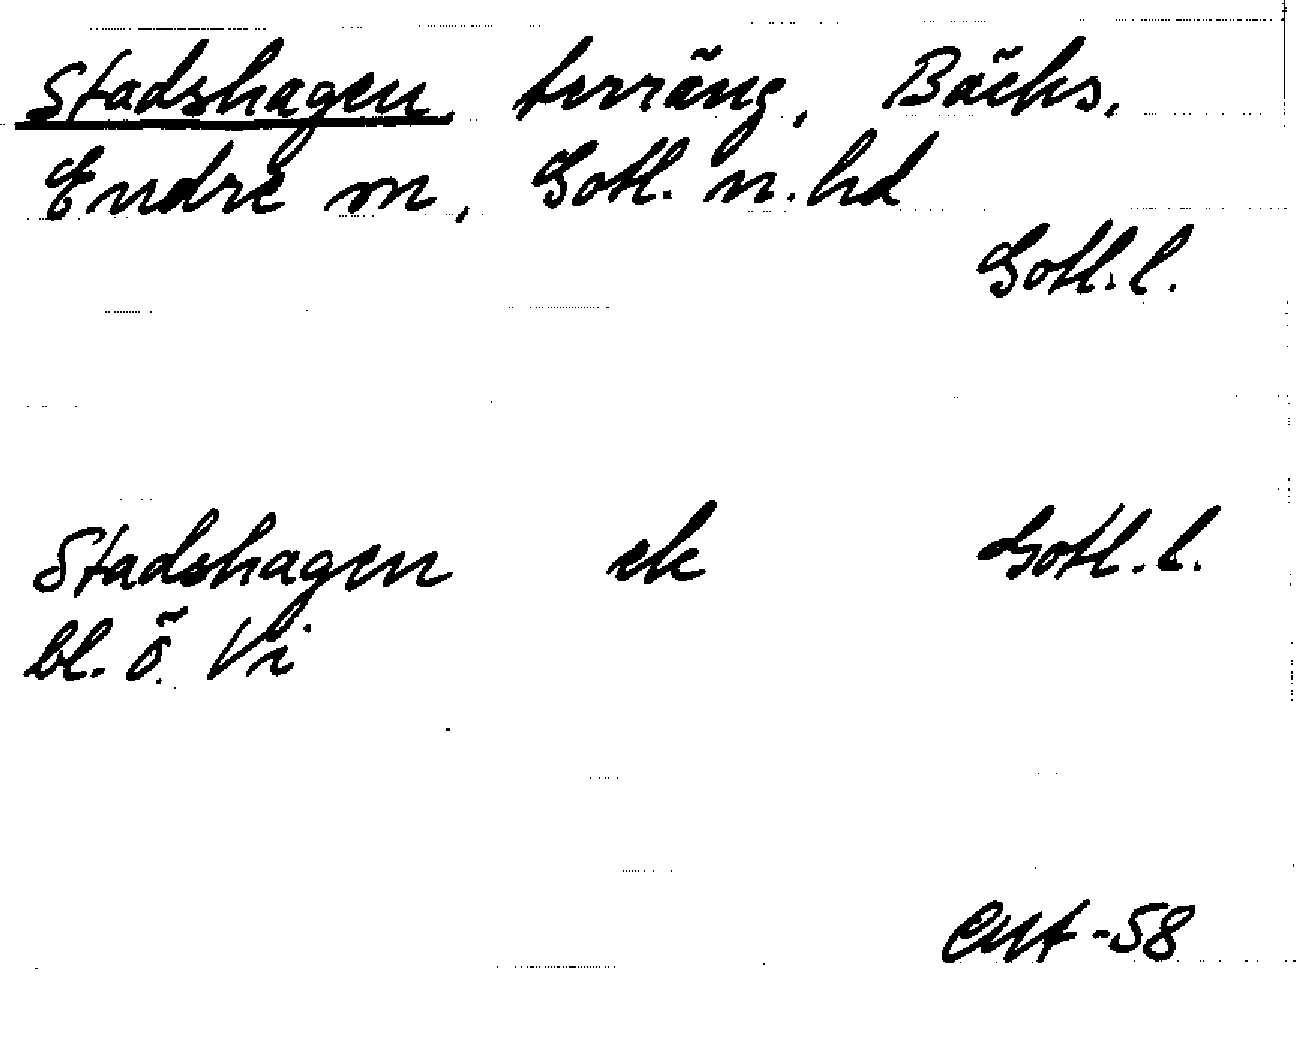 Stadshagen, terräng, Bäcks,
Endre sn, Gotl. n. hd
Gotl. l.
Stadshagen ek Gotl. l.
bl. ö. Vi
-58